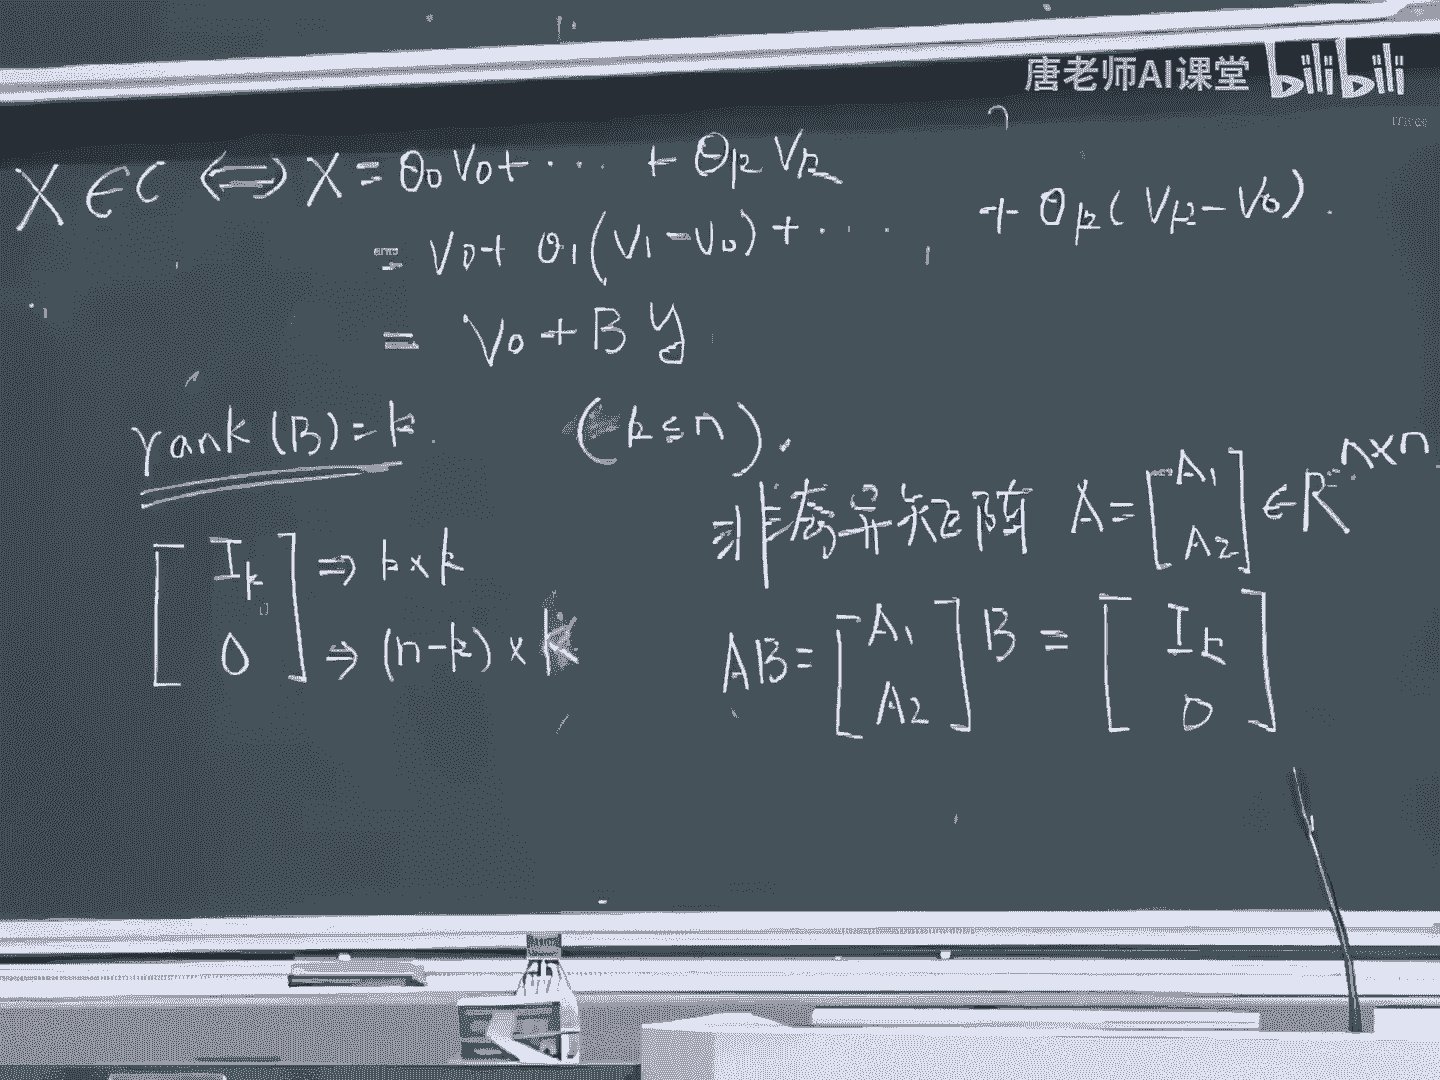 唐老师AI课堂 bilibili
X ∈ C ⟺ X = θ₀V₀ + ··· + θₖVₖ
= V₀ + θ₁(V₁ − V₀) + ···· + θₖ(Vₖ − V₀).
= V₀ + B y
rank(B) = k. (k ≤ n).
非奇异矩阵 A = [A₁ A₂] ∈ R^{n×n}
[Iₖ 0] ⇒ k×k ⇒ (n−k)×k
AB = [A₁ A₂] B = [Iₖ 0]